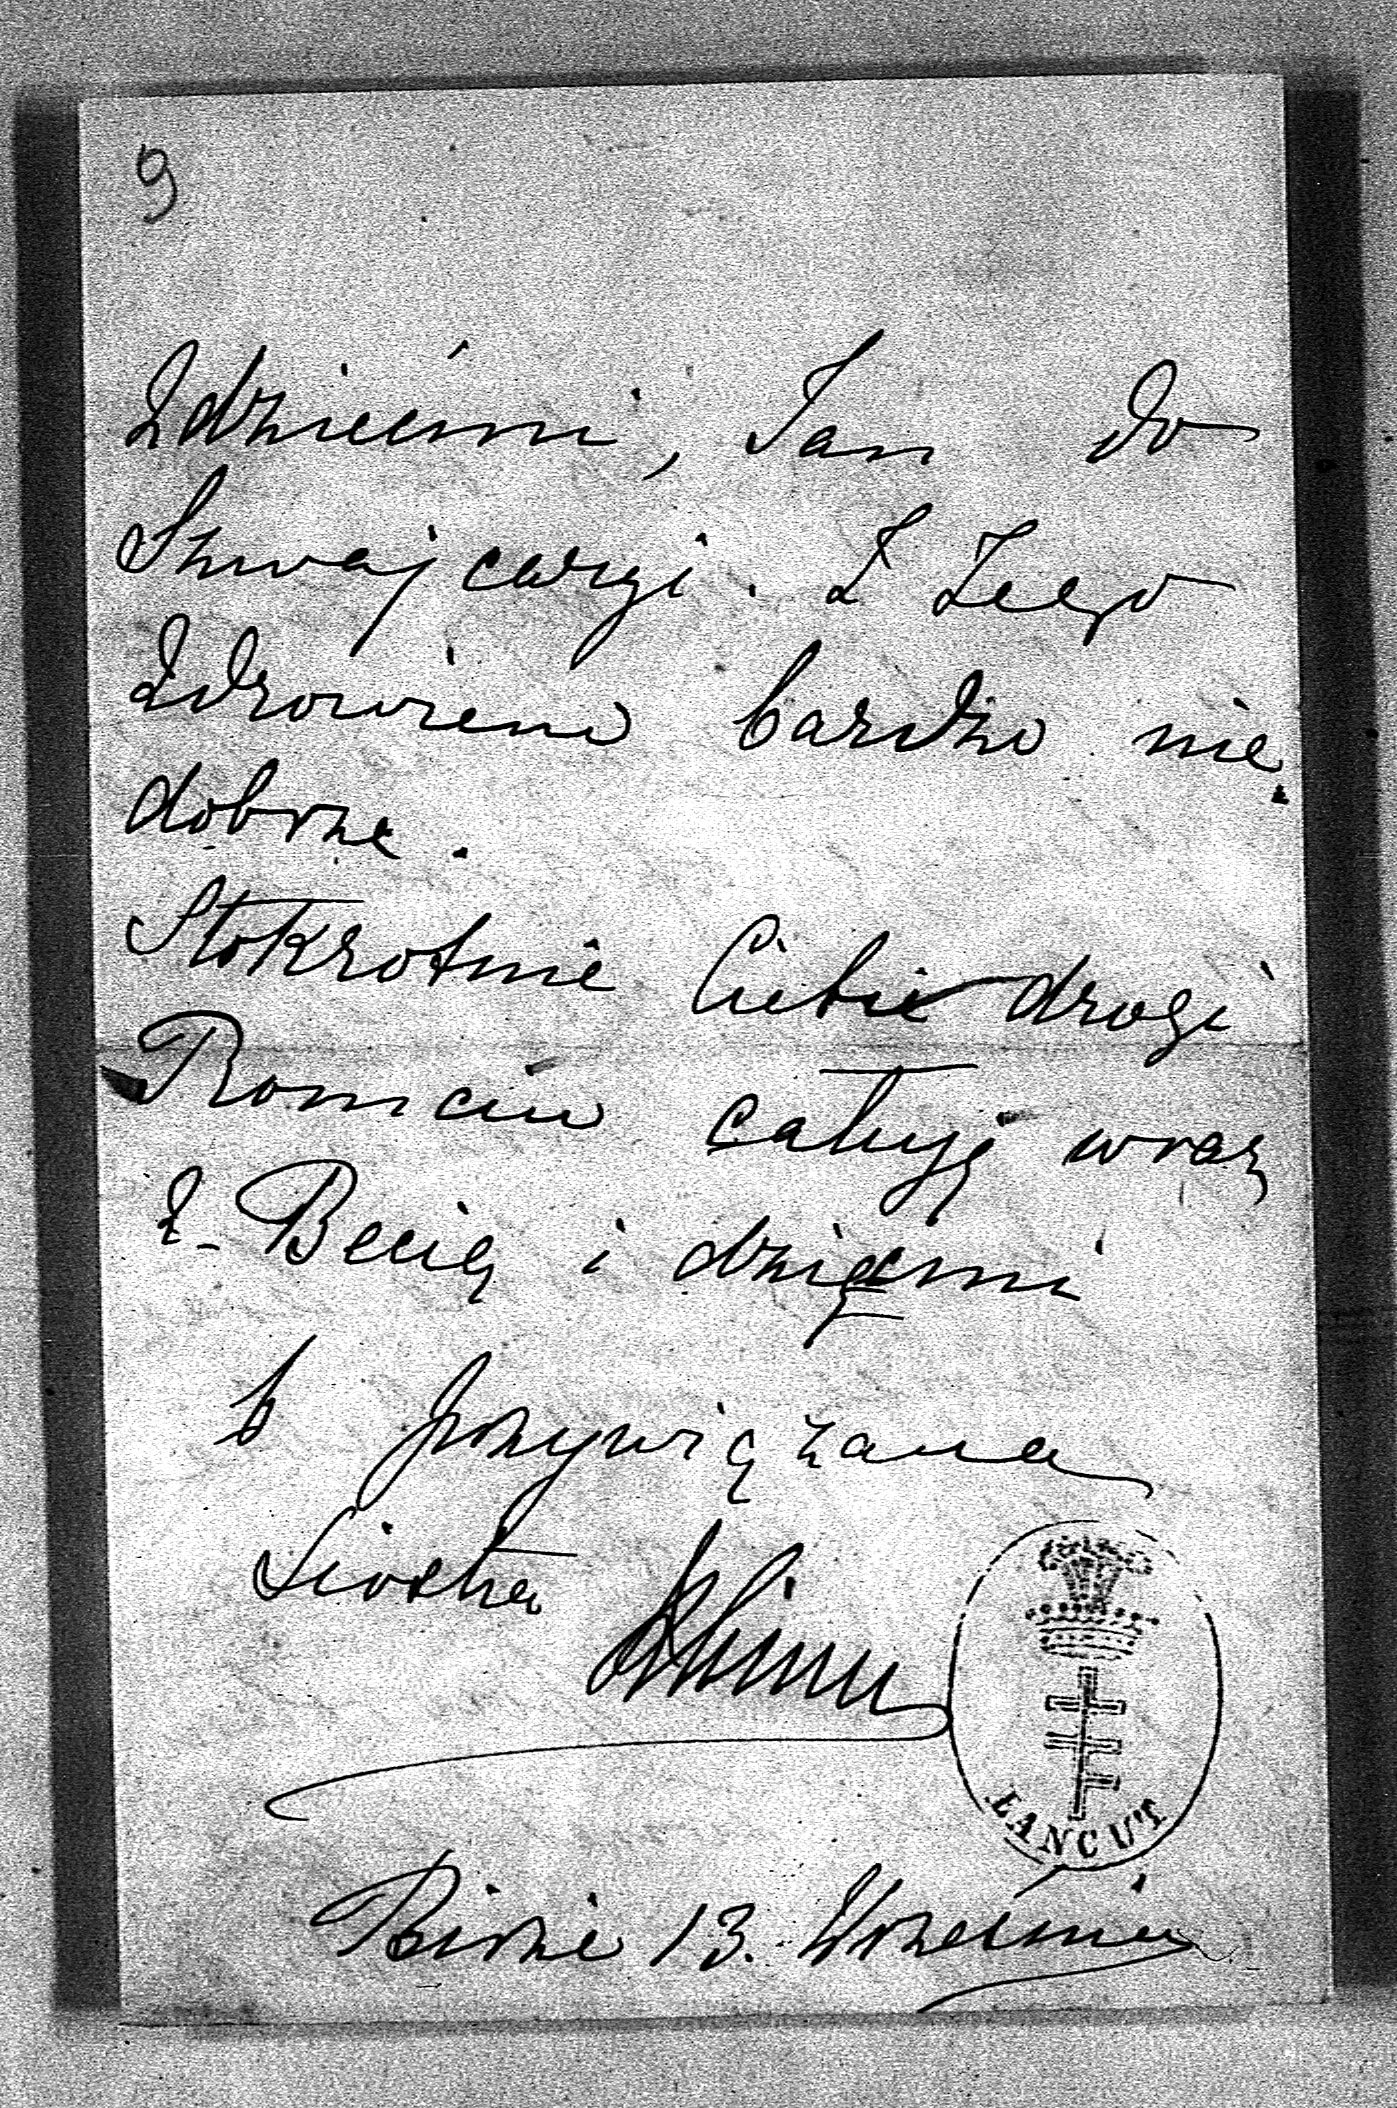 9
Zdziećmi, Jan do
Szwajcaryi. Z Jego
Zdrowiem bardzo nie
dobrze.
Stokrotnie Ciebie drogi
Romciu całuję wraz
z Becią i dziećmi
b przywiązana
Siostra
ŁANCUT
Birże 13. Września